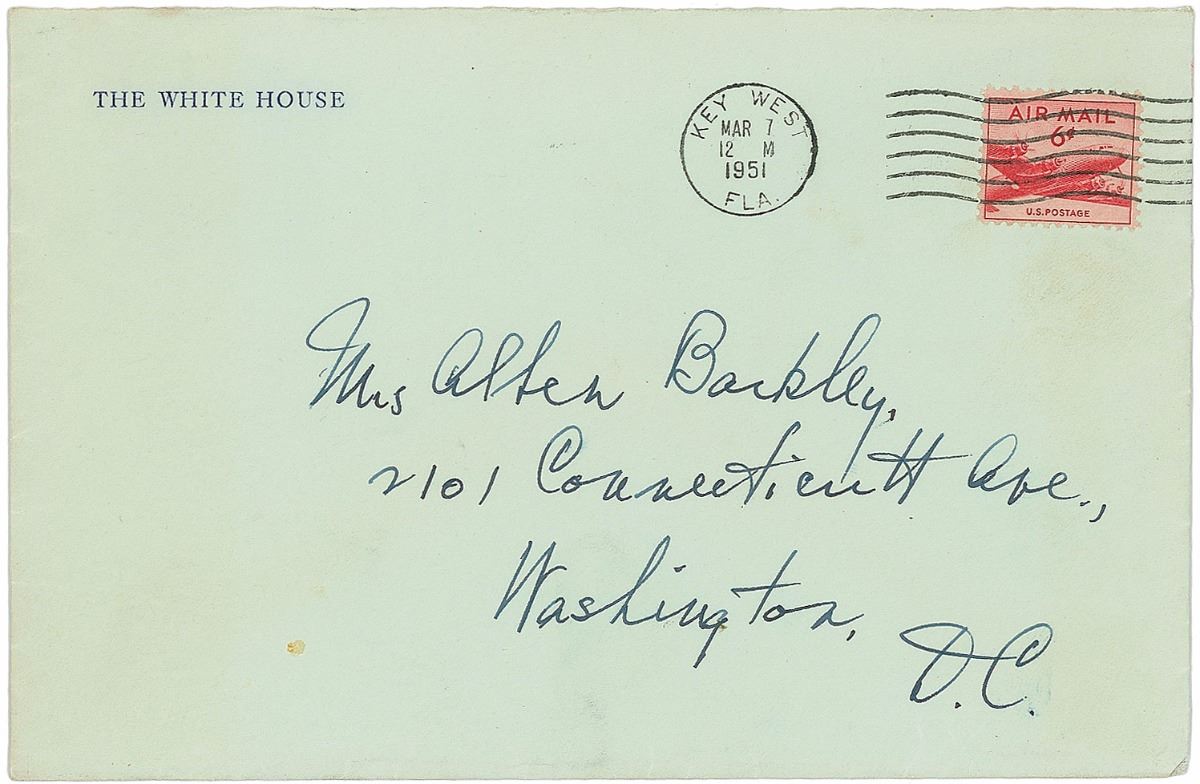 THE WHITE HOUSE
KEY WEST
MAR 7
12 M
1951
FLA.
AIR MAIL
6¢
U.S. POSTAGE
Mrs Alben Barkley,
2101 Connecticutt Ave.,
Washington,
D.C.